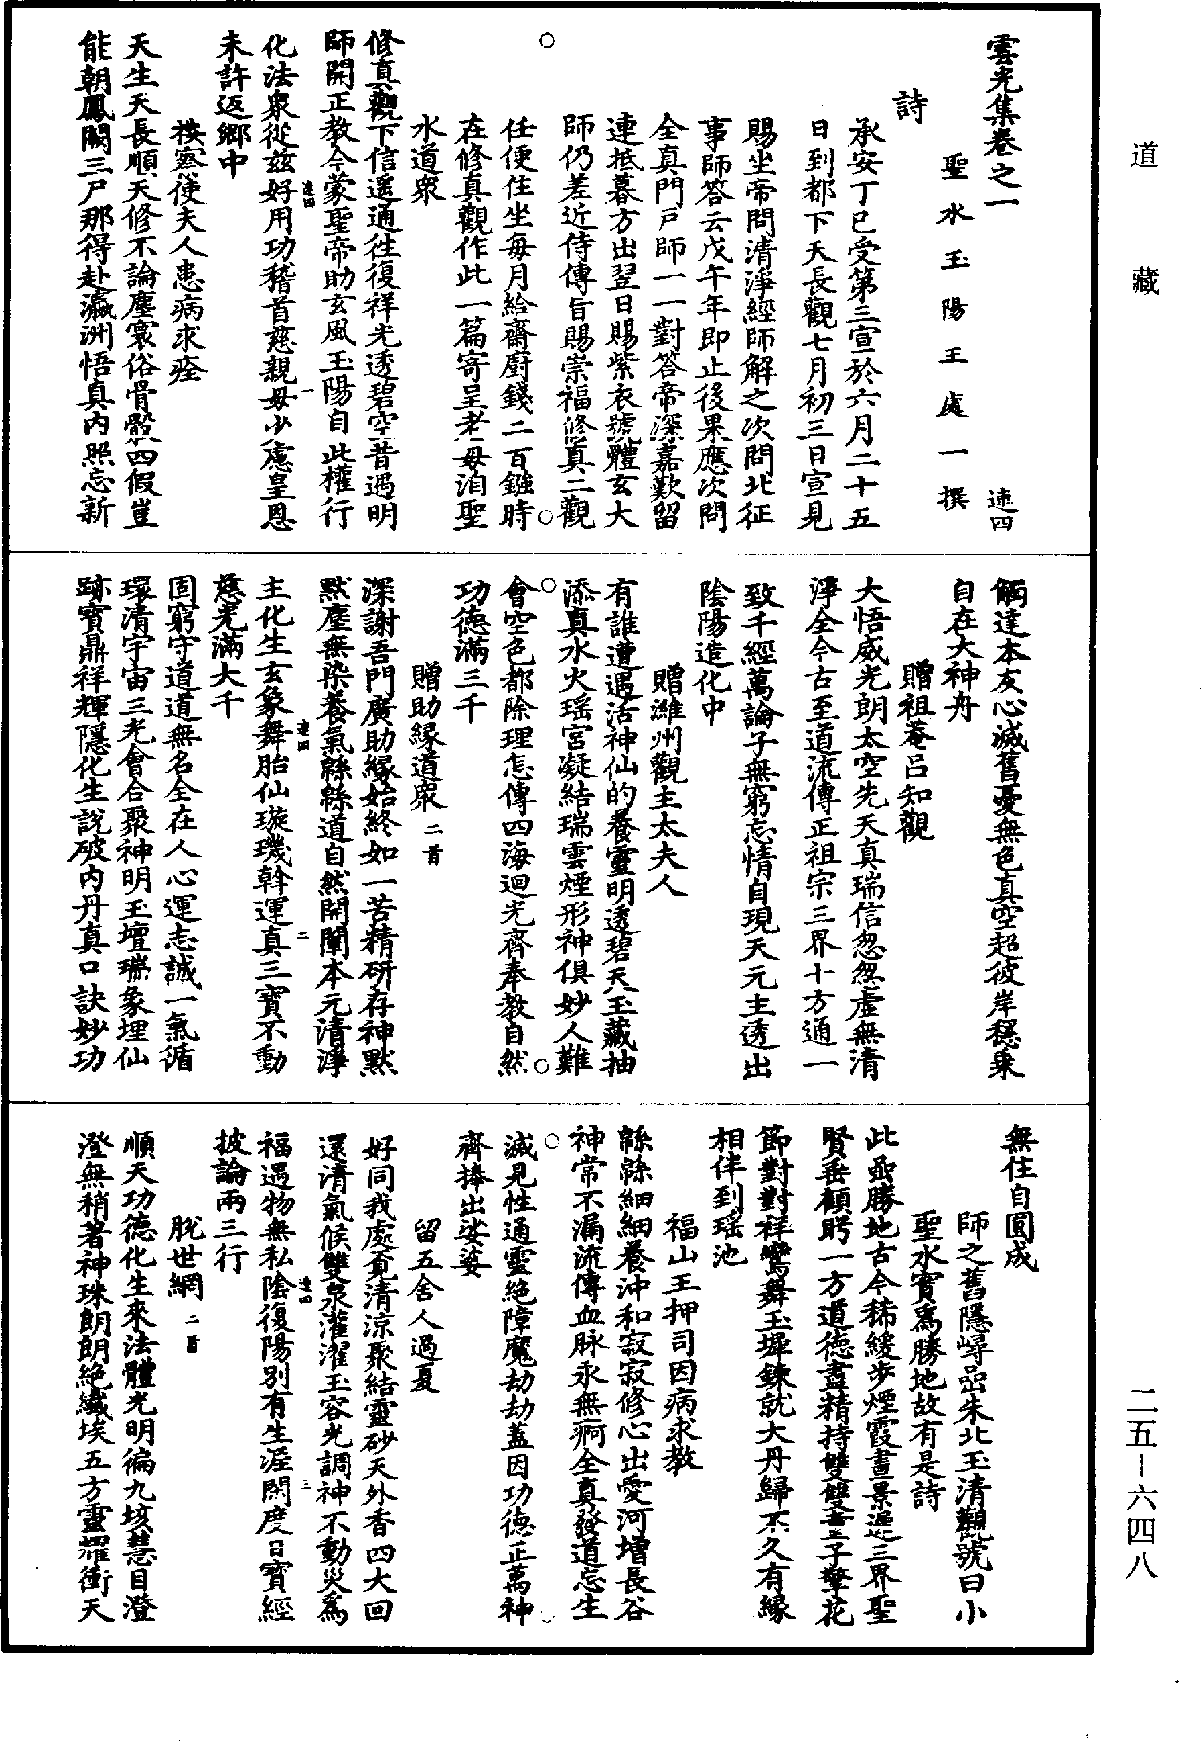 道藏
二五—六四八
雲光集卷之一　速四
聖水玉陽王處一撰
詩
承安丁巳受第三宣於六月二十五
日到都下天長觀七月初三日宣見
賜坐帝問清淨經師解之次問北征
事師答云戊午年即止後果應次問
全真門戶師一一對答帝深嘉歎留
連抵暮方出翌日賜紫衣號體玄大
師仍差近侍傳旨賜崇福修真二觀
任便住坐每月給齋廚錢二百鏹時
在修真觀作此一篇寄呈老母洎聖
水道衆
修真觀下信遙通往復祥光透碧空昔遇明
師開正教今蒙聖帝助玄風玉陽自此權行
化法衆從茲好用功稽首慈親毋少慮皇恩
未許返鄉中
速四　一
按察使夫人患病求痊
天生天長順天修不論塵寰俗骨骰四假豈
能朝鳳闕三尸那得赴瀛洲悟真內照忘新
觸達本灰心滅舊憂無色真空超彼岸穩乘
自在大神舟
贈祖菴呂知觀
大悟威光朗太空先天真瑞信怱怱虛無清
淨全今古至道流傳正祖宗三界十方通一
致千經萬論子無窮忘情自現天元主透出
陰陽造化中
贈濰州觀主太夫人
有誰遭遇活神仙的養靈明透碧天玉藏抽
添真水火瑤宮凝結瑞雲煙形神俱妙人難
會空色都除理怎傳四海迴光齊奉教自然
功德滿三千
贈助緣道衆二首
深謝吾門廣助緣始終如一苦精研存神默
默塵無染養氣緜緜道自然開闡本元清淨
主化生玄象舞胎仙璇璣斡運真三寶不動
慈光滿大千
速四　二
固窮守道道無名全在人心運志誠一氣循
環清宇宙三光會合聚神明玉壇瑞象埋仙
跡寶鼎祥輝隱化生說破內丹真口訣妙功
無住自圓成
師之舊隱嶂嵒朱北玉清觀號曰小
聖水實爲勝地故有是詩
此亟勝地古今稀緩步煙霞晝景遲三界聖
賢垂顧眄一方道德盡精持雙雙童子擎花
節對對祥鸞舞玉墀鍊就大丹歸不久有緣
相伴到瑤池
福山王押司因病求教
緜緜細細養沖和寂寂修心出愛河增長谷
神常不漏流傳血脉永無痾全真發道忘生
滅見性通靈絕障魔劫劫蓋因功德正萬神
齊捧出娑婆
留五舍人過夏
好同我處覓清涼聚結靈砂天外香四大回
還清氣候雙泉灌濯玉容光調神不動災爲
福遇物無私陰復陽別有生涯閑度日寶經
披論兩三行
速四　三
脫世網二首
順天功德化生來法體光明徧九垓慧目澄
澄無稍著神珠朗朗絕纖埃五方靈耀衝天